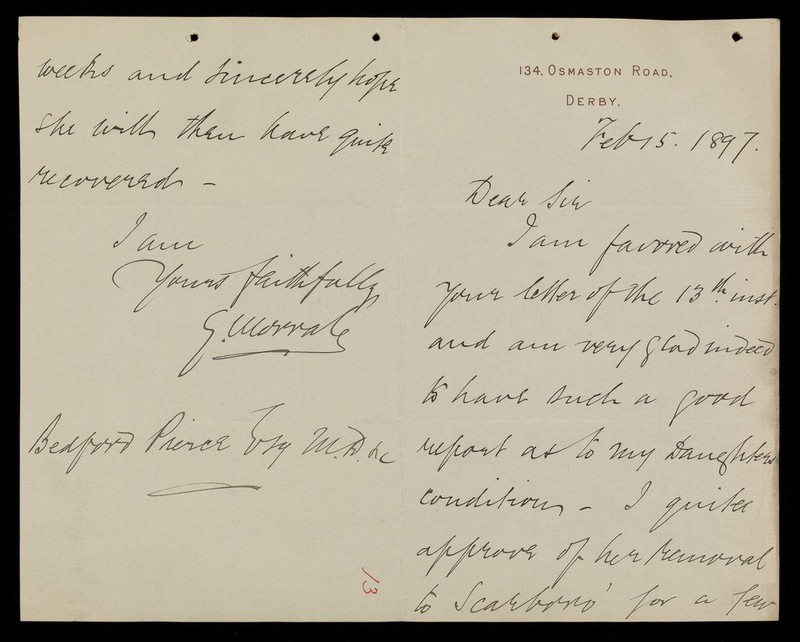 134, OSMASTON ROAD,
DERBY.
Feb 15. 1897.
Dear Sir
I am favored with
your letter of the 13th. inst.
and am very glad indeed
to have such a good
report as to my Daughters
condition - I quite
approve of her removal
to Scarboro' for a few
weeks and sincerely hope
she will then have quite
recovered -
I am
Yours faithfully
G.
Bedford Pierce Esq M.D. &c
13